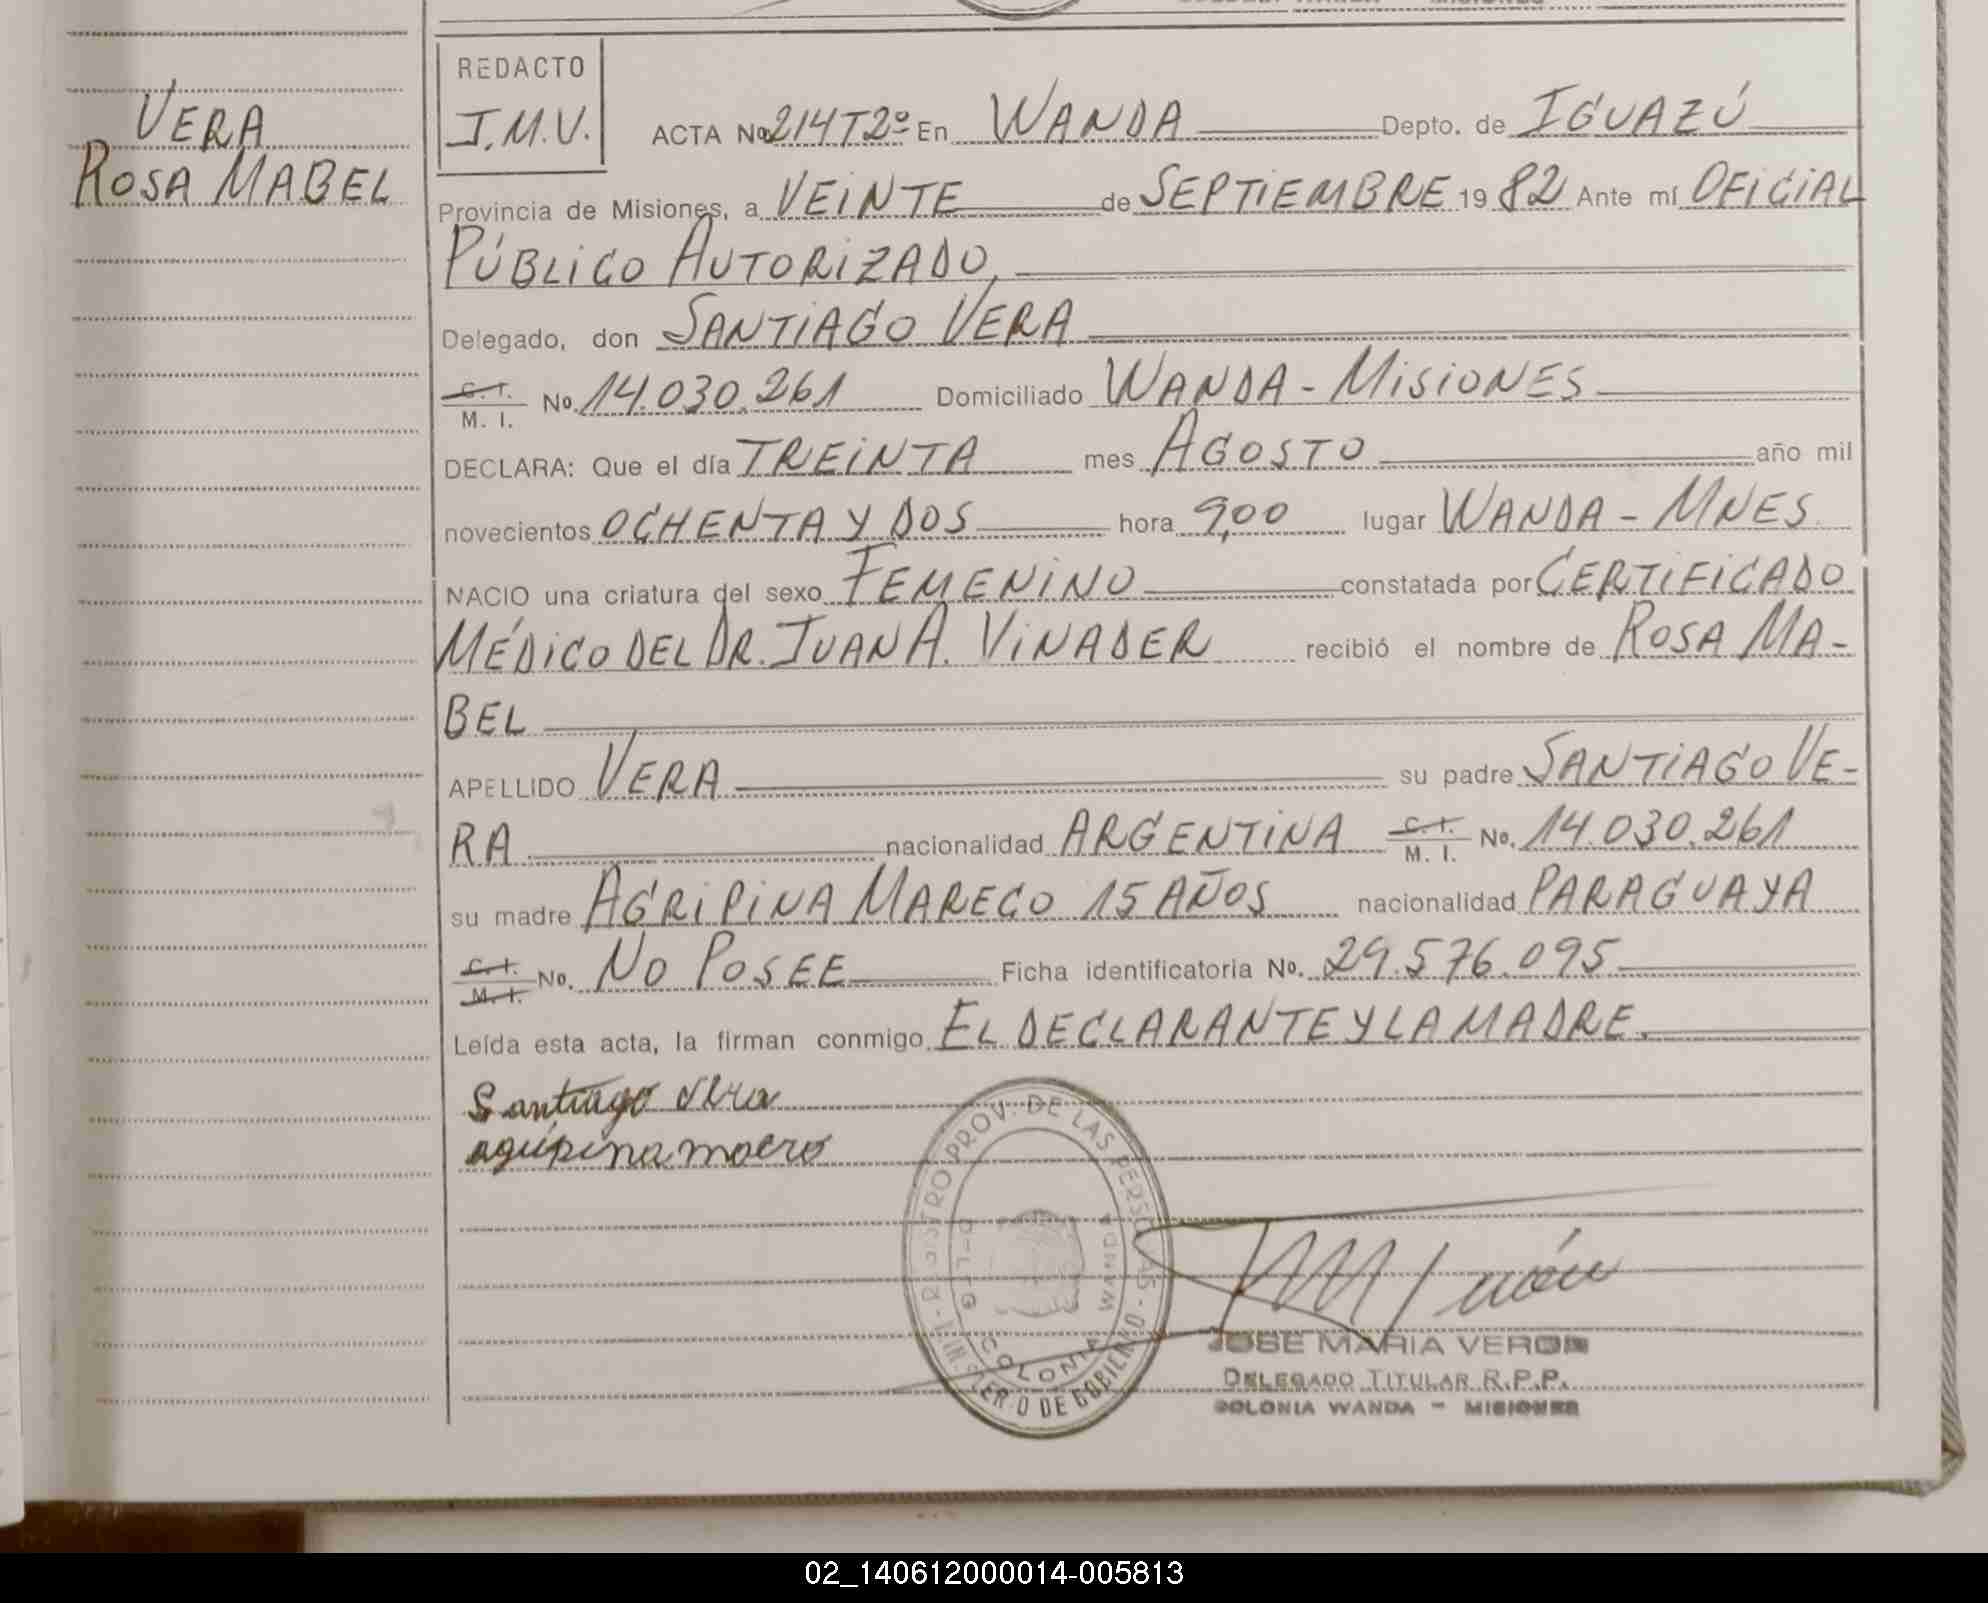 VERA
ROSA MABEL
REDACTO
J.M.V.
ACTA No 214T2º En WANDA Depto. de IGUAZÚ
Provincia de Misiones, a VEINTE de SEPTIEMBRE 1982 Ante mí OFICIAL
PÚBLICO AUTORIZADO,
Delegado, don SANTIAGO VERA
C.I.
M. I. No. 14.030.261 Domiciliado WANDA - MISIONES
DECLARA: Que el día TREINTA mes AGOSTO año mil
novecientos OCHENTA Y DOS hora 9,00 lugar WANDA - MNES
NACIO una criatura del sexo FEMENINO constatada por CERTIFICADO
MÉDICO DEL DR. JUAN A. VINADER recibió el nombre de ROSA MA-
BEL
APELLIDO VERA su padre SANTIAGO VE-
RA nacionalidad ARGENTINA C.I. M. I. No. 14.030.261
su madre AGRIPINA MARECO 15 AÑOS nacionalidad PARAGUAYA
C.I. M.I. No. NO POSEE Ficha identificatoria No. 29.576.095
Leída esta acta, la firman conmigo EL DECLARANTE Y LA MADRE.
Santiago Vera
agripina
REGISTRO PROV. DE LAS PERSONAS
MINISTERIO DE GOBIERNO
COLONIA WANDA
JOSE MARIA VERON
DELEGADO TITULAR R.P.P.
COLONIA WANDA - MISIONES
02_140612000014-005813